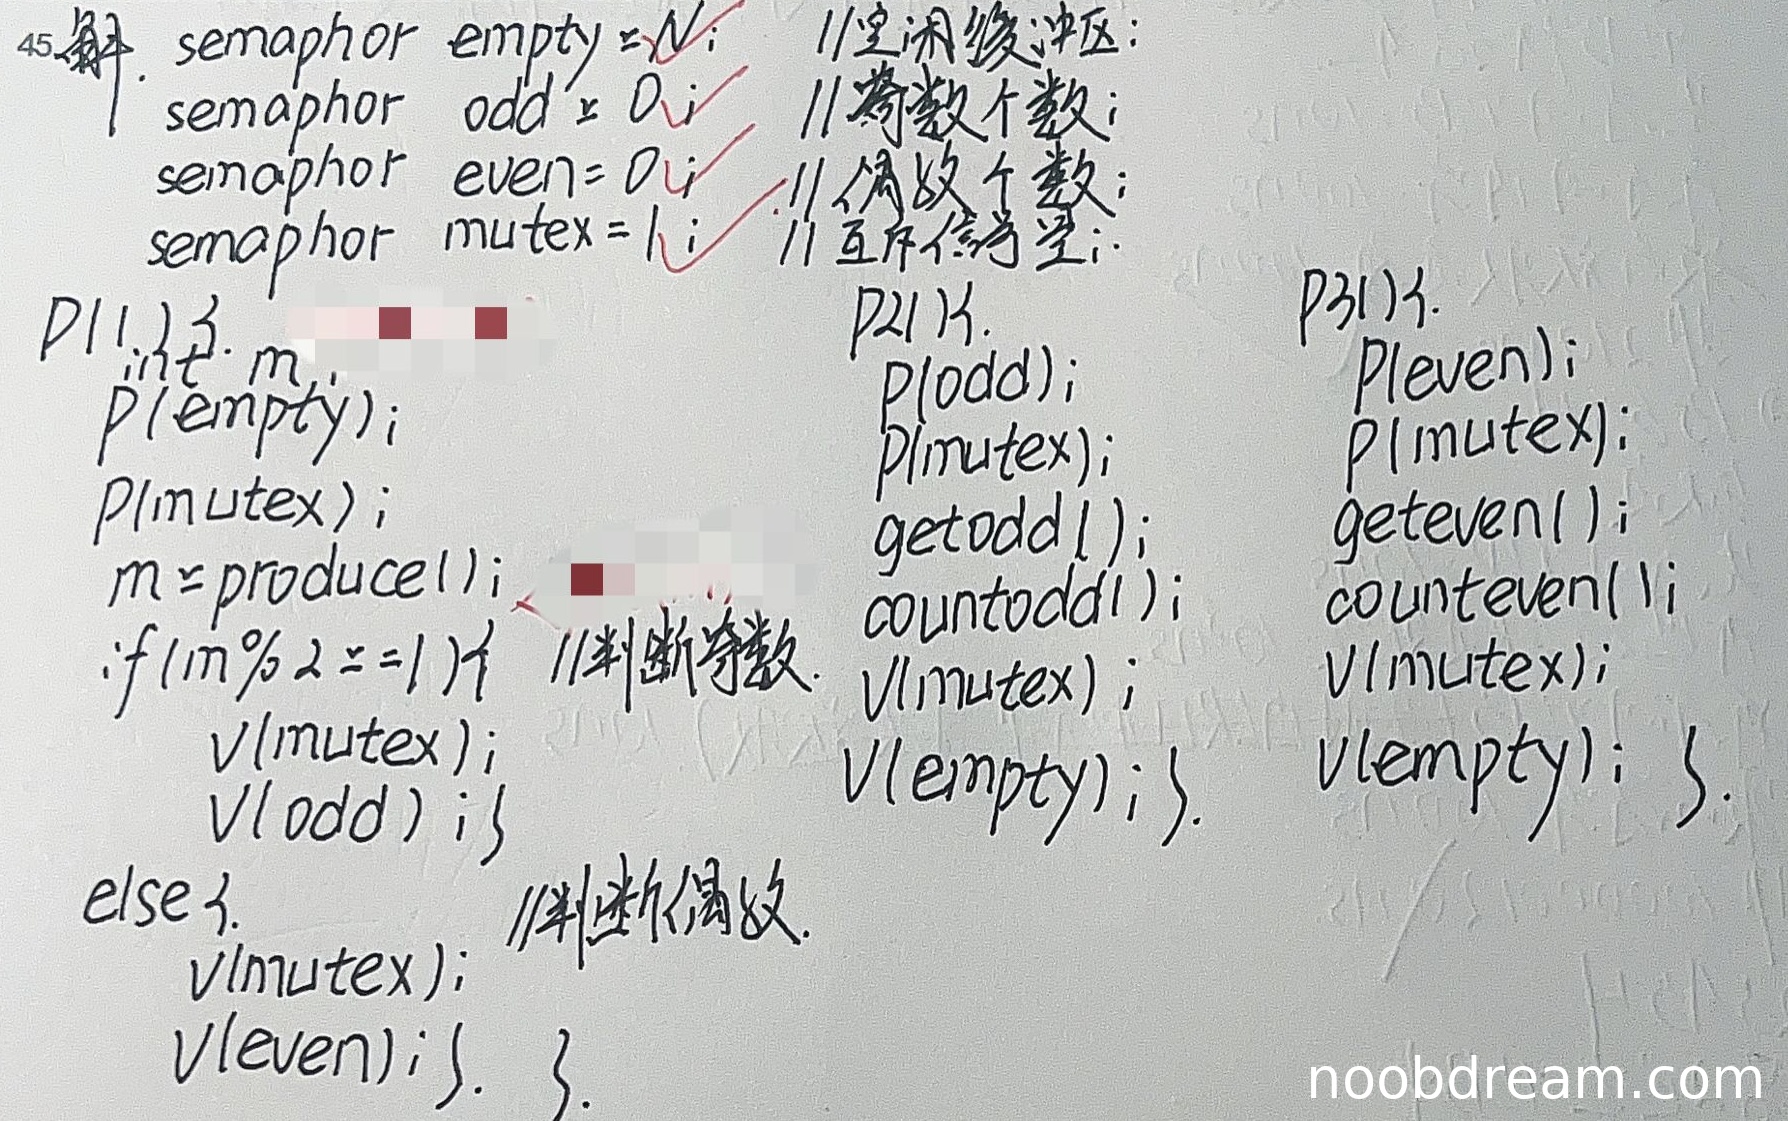 45.解. semaphor empty = N; //空闲缓冲区;
semaphor odd = 0; //奇数个数;
semaphor even = 0; //偶数个数;
semaphor mutex = 1; //互斥信号量;
P1(){
int m;
P(empty);
P(mutex);
m = produce();
if(m%2 == 1){ //判断奇数.
V(mutex);
V(odd);}
else{ //判断偶数.
V(mutex);
V(even);}. }.
P2(){
P(odd);
P(mutex);
getodd();
countodd();
V(mutex);
V(empty);}.
P3(){
P(even);
P(mutex);
geteven();
counteven();
V(mutex);
V(empty); }.
noobdream.com